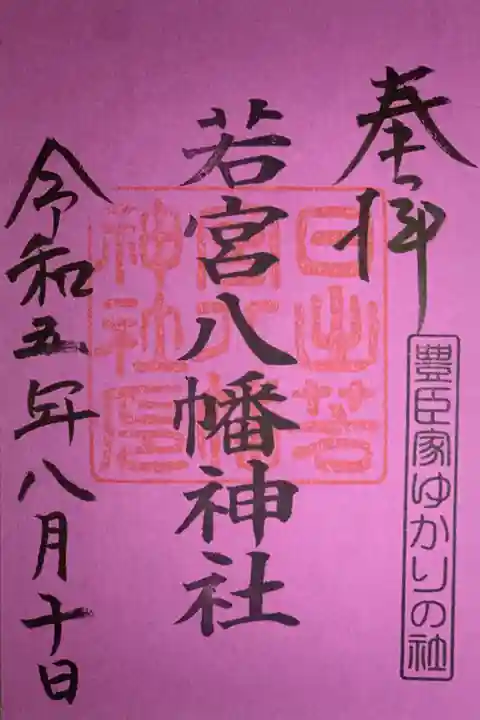 奉拝
豊臣家ゆかりの社
若宮八幡神社
日出若宮八幡神社印
令和五年八月十日